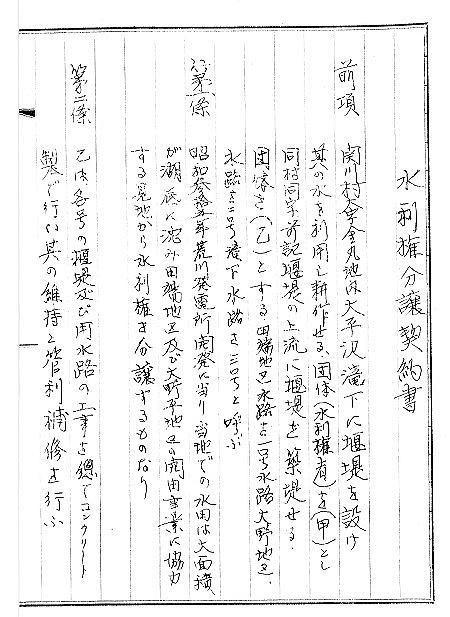 水利権分譲契約書
前項
関川村大字金丸池は大平沢滝下に堰堤を設け
其の水を利用し耕作せる、団体(水利権者)を(甲)とし
同村同字前記堰堤の上流に堰堤を築堤せる
団体を(乙)とする 田端地区水路を一号水路大野地区、
水路を二号滝下水路を三号と呼ぶ
第一條
昭和参拾五年荒川発電所開発に当り当地での水田は大面積
が湖底に沈み田端地区及び大野平地区の開田事業に協力
する見地から水利権を分譲するものなり
第二條
乙は、各号の堰堤及び用水路の工事を總てコンクリート
製で行い其の維持と管利補修を行ふ